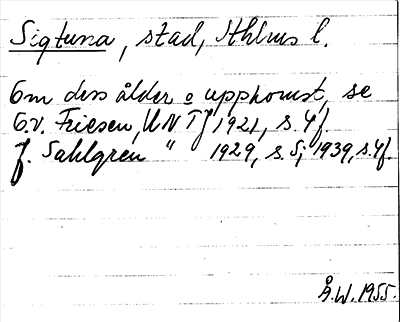 Sigtuna, stad, Sthlms l.
Om dess ålder o uppkomst, se
O.v. Friesen, UNT J 1921, s. 4f.
J. Sahlgren " 1929, s. 5; 1939, s. 4f.
Å.W. 1955.